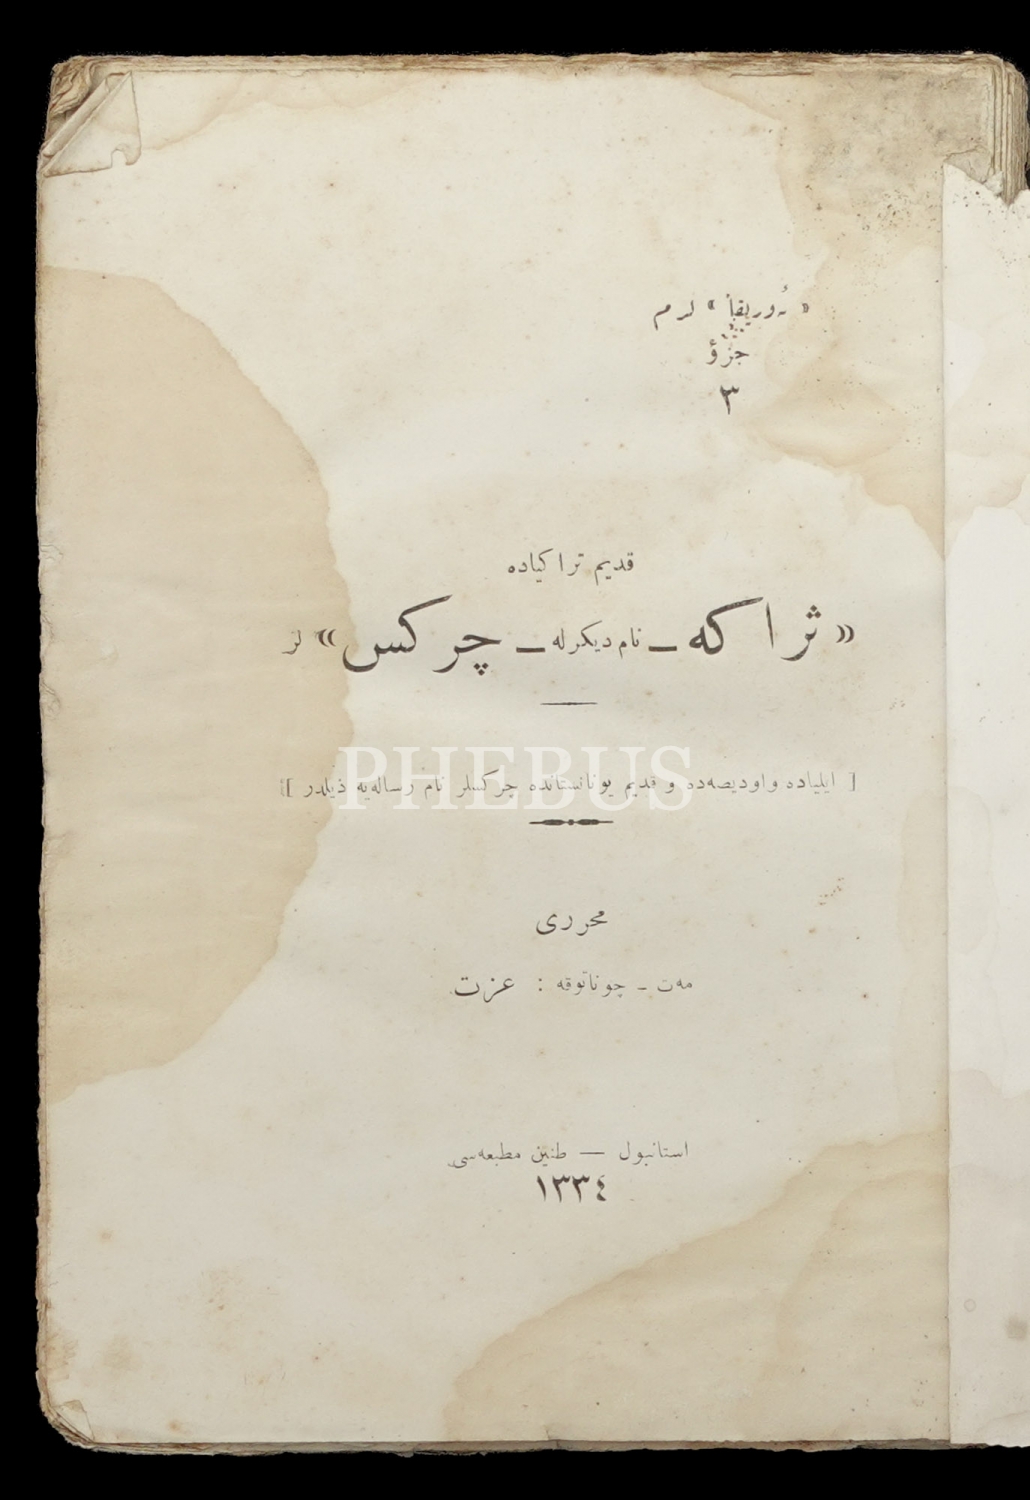 « ئه‌وریقا » لرم
جزؤ
٣
قدیم تراکیاده
« ثراکه ـ نام دیکرله ـ چرکس » لر
[ ایلیاده واودیصه‌ده و قدیم یونانستانده چرکسلر نام رساله‌یه ذیلدر ]
PHEBUS
محرری
مه‌ت ـ چوناتوقه : عزت
استانبول — طنین مطبعه‌سی
١٣٣٤